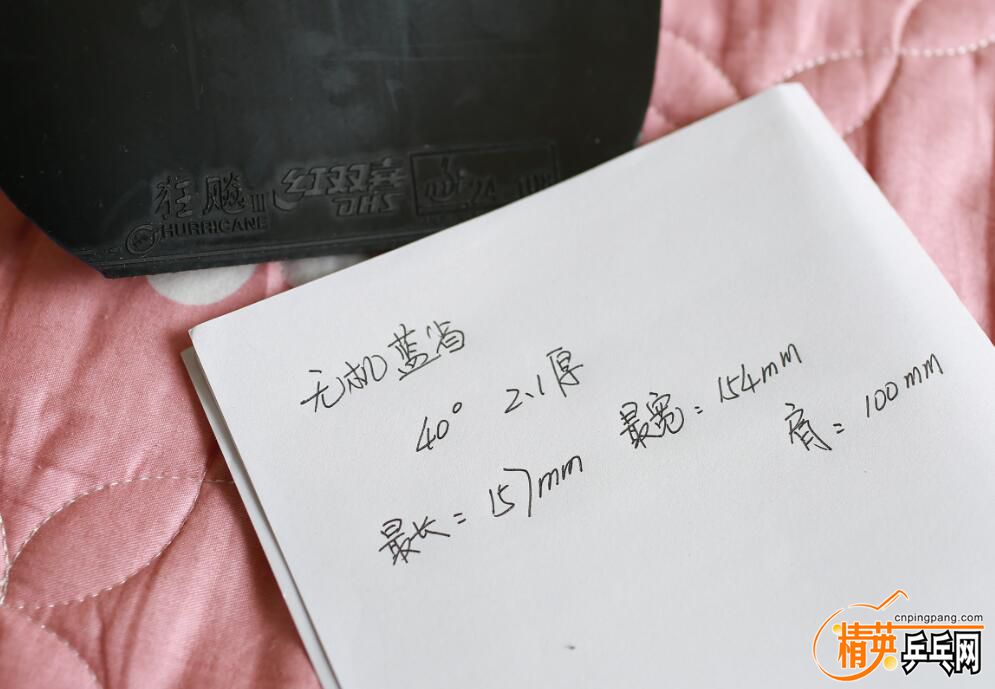 狂飚III
HURRICANE
红双喜
DHS
无机蓝省
40° 2.1厚
最宽：154mm
肩：100mm
最长＝157mm
cnpingpang.com
精英乒乓网